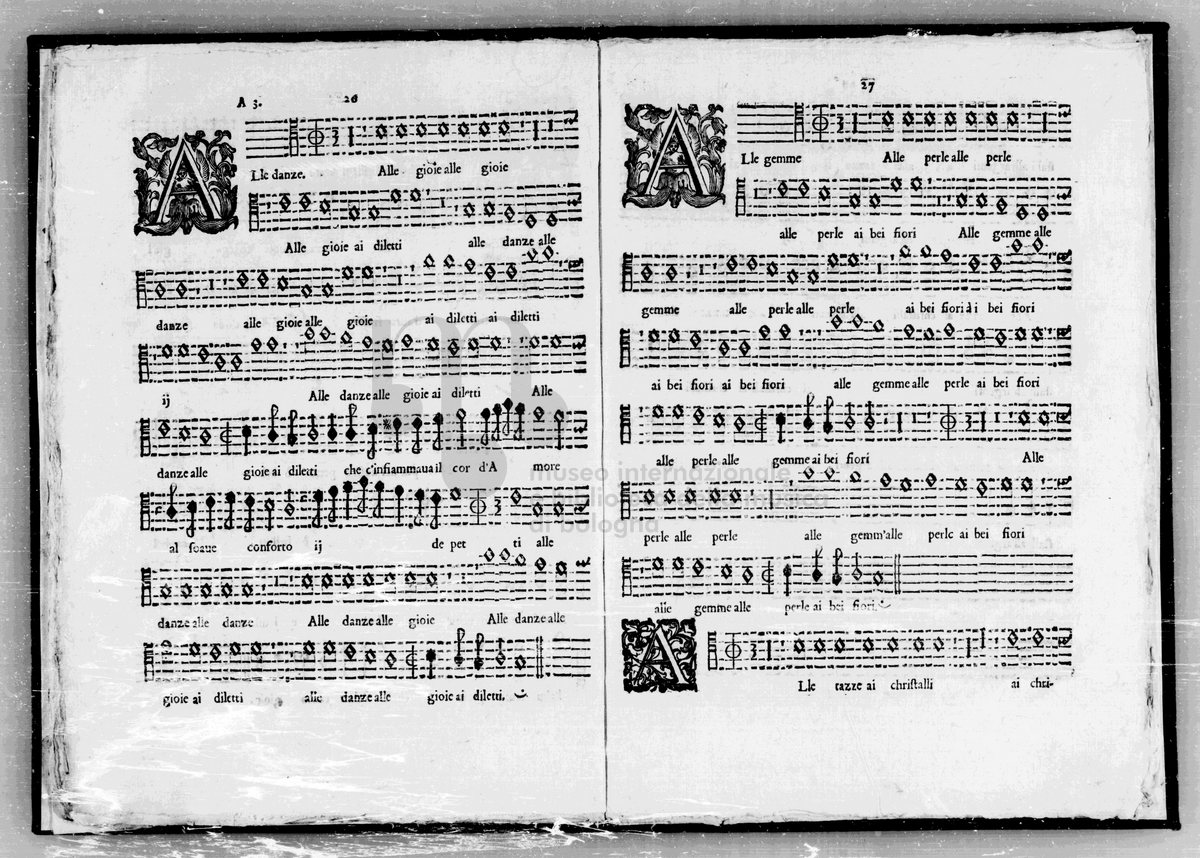 A 3.
26
ALle danze. Alle gioie alle gioie
Alle gioie ai diletti alle danze alle
danze alle gioie alle gioie ai diletti ai diletti
ij Alle danze alle gioie ai diletti Alle
danze alle gioie ai diletti che c'infiammaua il cor d'A more
al soaue conforto ij de pet ti alle
danze alle danze Alle danze alle gioie Alle danze alle
gioie ai diletti alle danze alle gioie ai diletti.
27
ALle gemme Alle perle alle perle
alle perle ai bei fiori Alle gemme alle
gemme alle perle alle perle ai bei fiori ai bei fiori
ai bei fiori ai bei fiori alle gemme alle perle ai bei fiori
alle perle alle gemme ai bei fiori Alle
perle alle perle alle gemm'alle perle ai bei fiori
alle gemme alle perle ai bei fiori.
ALle tazze ai christalli ai chri-
museo internazionale
e biblioteca della musica
di bologna